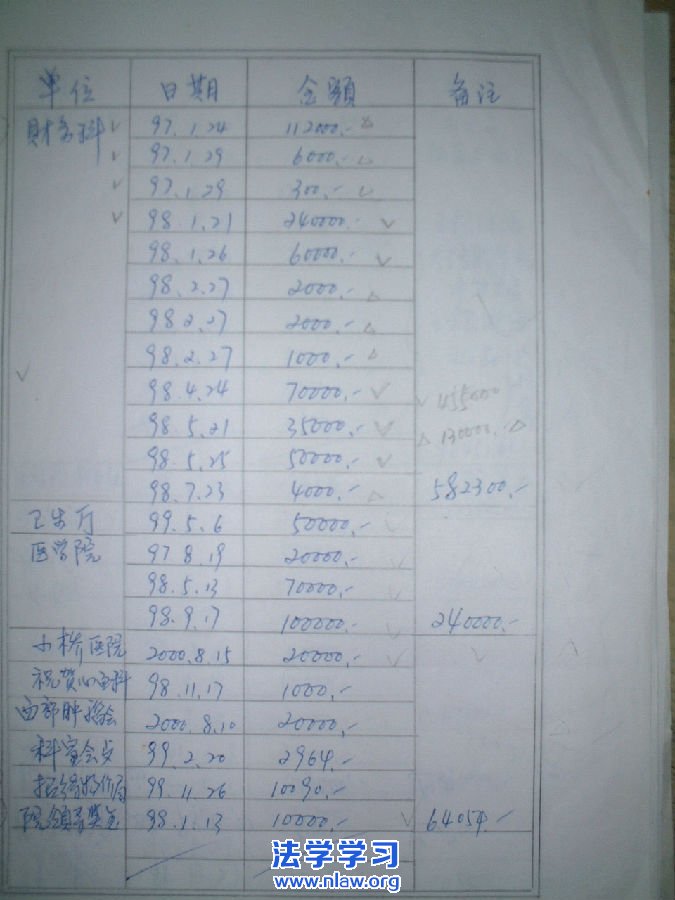 单位 日期 金额 备注
财务科 ✓ 97.1.24 112000.- △
✓ 97.1.29 6000.- △
✓ 97.1.29 300.- △
✓ 98.1.21 240000.- ✓
98.1.26 60000.- ✓
98.2.27 2000.- △
98.2.27 2000.- △
98.2.27 1000.- △
✓ 98.4.24 70000.- ✓ ✓ 455000
98.5.21 35000.- ✓ △ 130000.- △
98.5.25 50000.- ✓
98.7.23 4000.- △ 582300.-
卫生厅 99.5.6 50000.- ✓
医学院 97.8.19 20000.- ✓
98.5.13 70000.- ✓
98.9.17 100000.- ✓ 240000.-
小桥医院 2000.8.15 20000.- ✓ ✓
祝贺心血科 98.11.17 1000.-
西部肿 会 2000.8.10 20000.-
科室会 99.2.20 2964.-
99.11.26 10090.-
院领导奖金 98.1.13 10000.- ✓ 64054.-
法学学习
www.nlaw.org